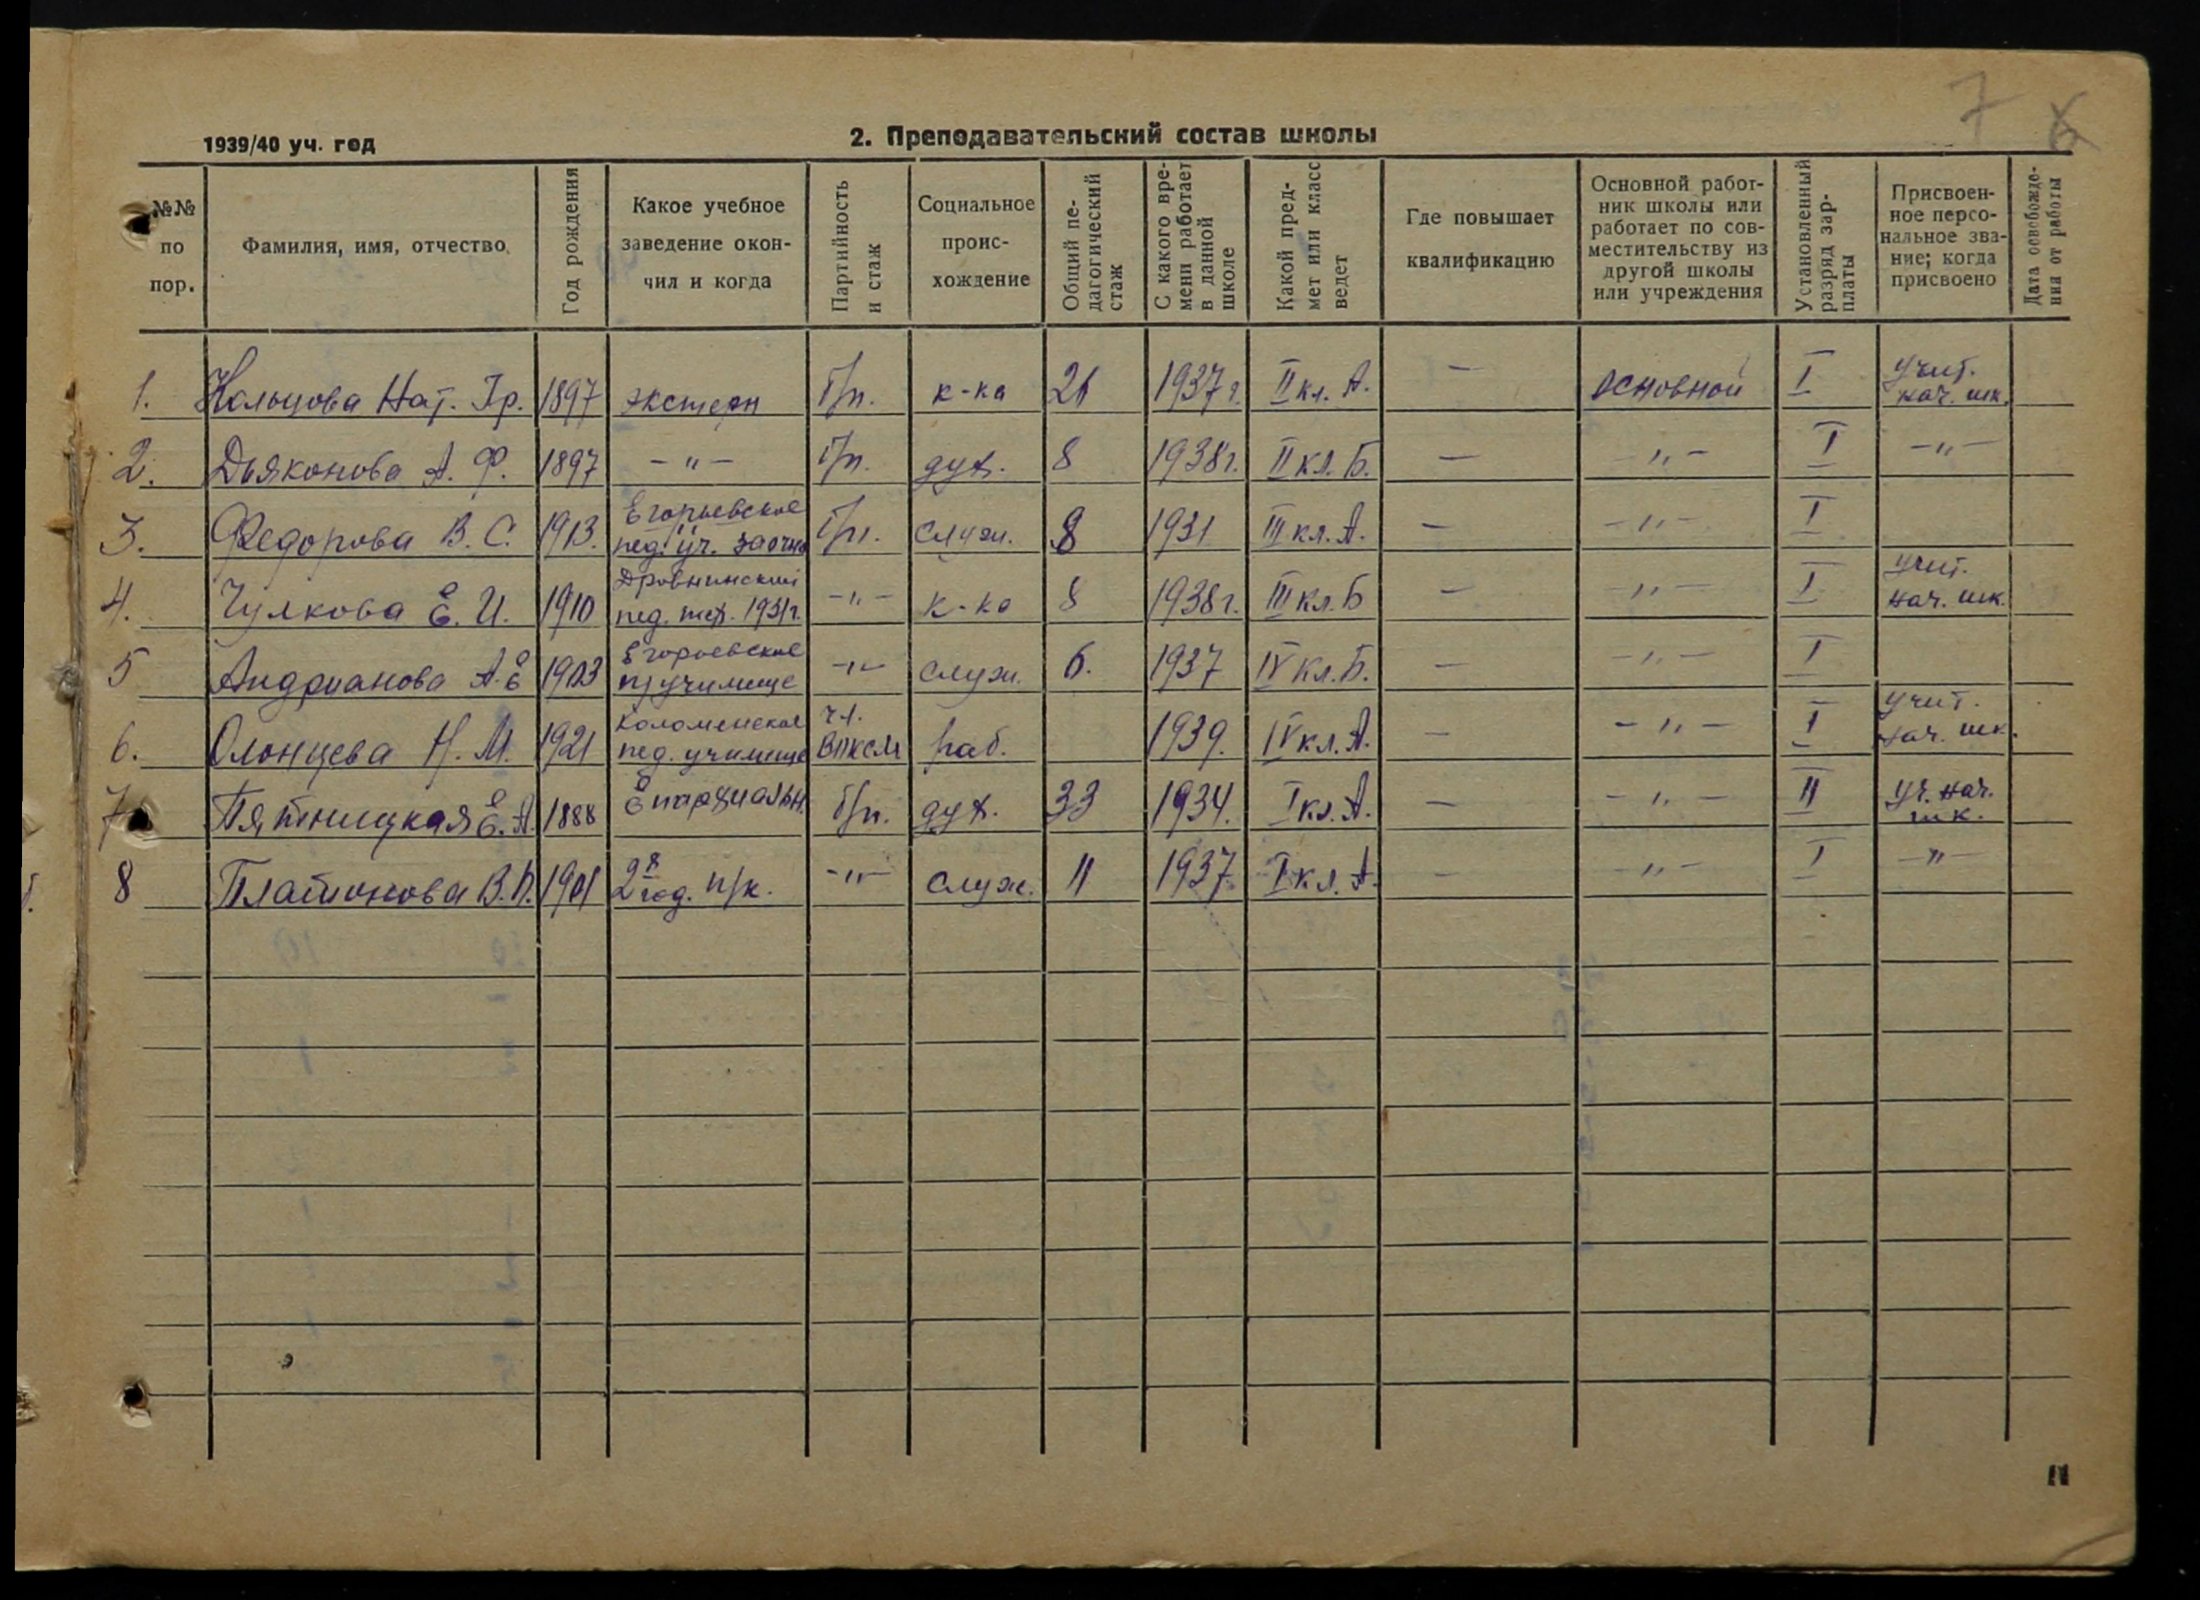 7 6
1939/40 уч. год
2. Преподавательский состав школы
№№ по пор.
Фамилия, имя, отчество
Год рождения
Какое учебное заведение окон-чил и когда
Партийность и стаж
Социальное проис-хождение
Общий пе-дагогический стаж
С какого вре-мени работает в данной школе
Какой пред-мет или класс ведет
Где повышает квалификацию
Основной работ-ник школы или работает по сов-местительству из другой школы или учреждения
Установленный разряд зар-платы
Присвоен-ное персо-нальное зва-ние; когда присвоено
Дата освобожде-ния от работы
1. Кольцова Нат. Гр. 1897 экстерн б/п. к-ка 21 1937 г. II кл. А. — основной I Учит. нач. шк.
2. Дьяконова А. Ф. 1897 — " — б/п. дух. 8 1938 г. II кл. Б. — — " — I — " —
3. Федорова В. С. 1913. Егорьевское пед. уч. заочно б/п. служ. 8 1931 III кл. А. — — " — I
4. Чулкова Е. И. 1910 Дровнинский пед. тех. 1931 г. — " — к-ка 8 1938 г. III кл. Б — — " — I учит. нач. шк.
5 Андрианова А. Е 1903 Егорьевское п/училище — " — служ. 6. 1937 IV кл. Б. — — " — I
6. Олонцева Н. М. 1921 Коломенское пед. училище чл. ВЛКСМ раб. 1939. IV кл. А. — — " — I учит. нач. шк.
7 Пятницкая Е. А. 1888 Епархиальн. б/п. дух. 33 1934. I кл. А. — — " — II уч. нач. шк.
8 Платонова В. П. 1901 2х год. п/к. — " — служ. 11 1937 I кл. А. — — " — I — " —